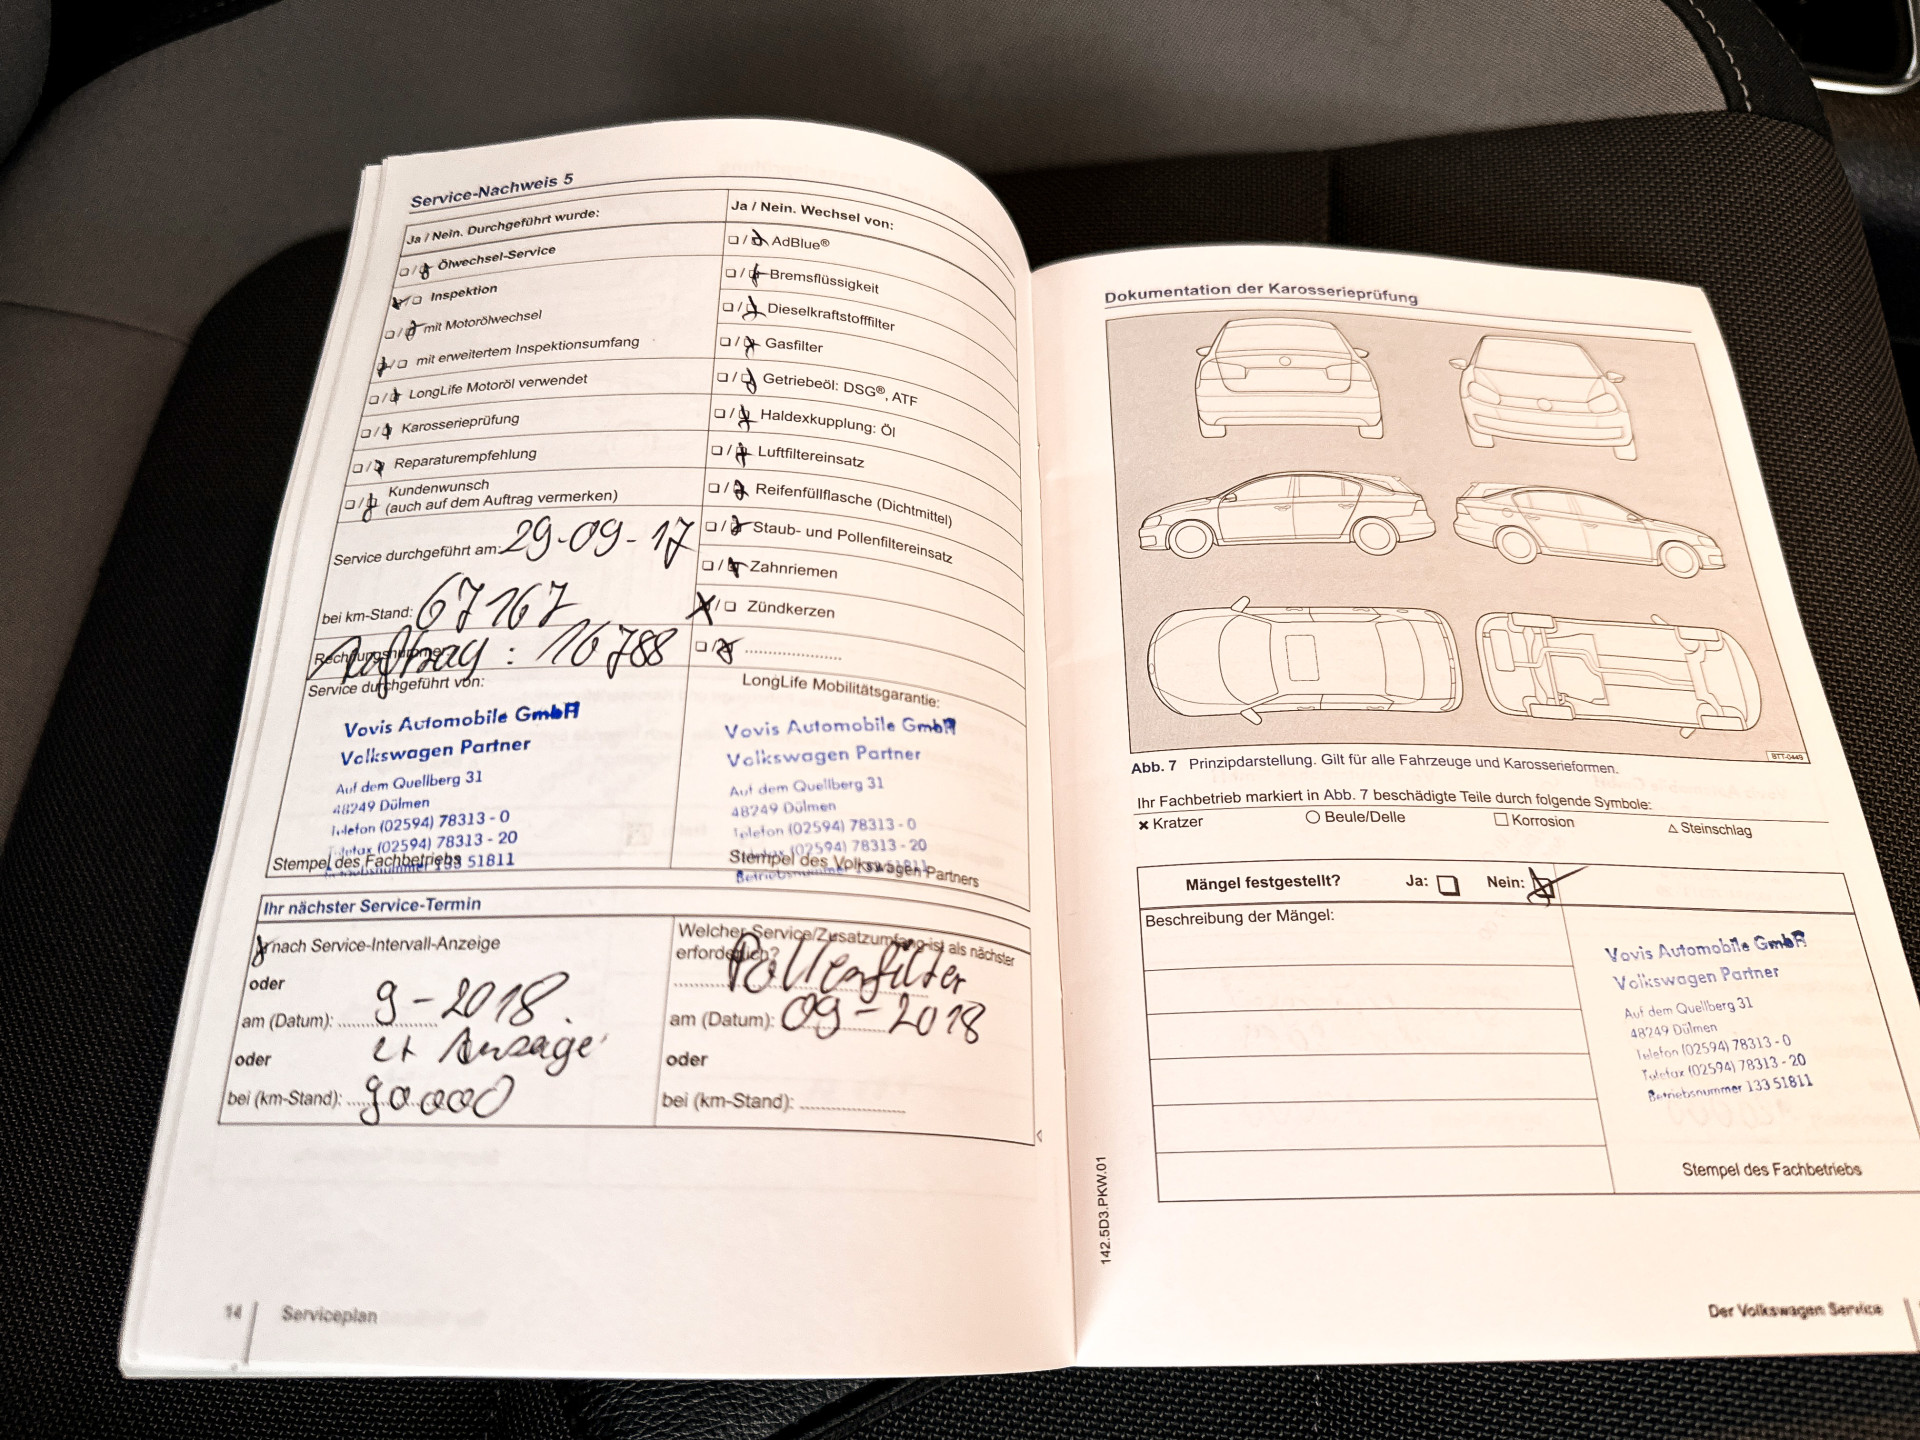 Service-Nachweis 5
Ja / Nein. Durchgeführt wurde:
Ölwechsel-Service
Inspektion
mit Motorölwechsel
mit erweitertem Inspektionsumfang
LongLife Motoröl verwendet
Karosserieprüfung
Reparaturempfehlung
Kundenwunsch
(auch auf dem Auftrag vermerken)
Service durchgeführt am: 29-09-17
bei km-Stand: 67167
Rechnungsnummer:
Auftrag: 16788
Service durchgeführt von:
Vovis Automobile GmbH
Volkswagen Partner
Auf dem Quellberg 31
48249 Dülmen
Telefon (02594) 78313 - 0
Telefax (02594) 78313 - 20
Betriebsnummer 133 51811
Stempel des Fachbetriebs
Ja / Nein. Wechsel von:
AdBlue®
Bremsflüssigkeit
Dieselkraftstofffilter
Gasfilter
Getriebeöl: DSG®, ATF
Haldexkupplung: Öl
Luftfiltereinsatz
Reifenfüllflasche (Dichtmittel)
Staub- und Pollenfiltereinsatz
Zahnriemen
Zündkerzen
LongLife Mobilitätsgarantie:
Vovis Automobile GmbH
Volkswagen Partner
Auf dem Quellberg 31
48249 Dülmen
Telefon (02594) 78313 - 0
Telefax (02594) 78313 - 20
Betriebsnummer 133 51811
Stempel des Volkswagen Partners
Ihr nächster Service-Termin
nach Service-Intervall-Anzeige
oder
am (Datum): 9-2018
oder
bei (km-Stand): 90000
Welcher Service/Zusatzumfang ist als nächster
erforderlich?
Pollenfilter
am (Datum): 09-2018
oder
bei (km-Stand):
14 Serviceplan
Dokumentation der Karosserieprüfung
BTT-0449
Abb. 7 Prinzipdarstellung. Gilt für alle Fahrzeuge und Karosserieformen.
Ihr Fachbetrieb markiert in Abb. 7 beschädigte Teile durch folgende Symbole:
Kratzer Beule/Delle Korrosion Steinschlag
Mängel festgestellt? Ja: Nein:
Beschreibung der Mängel:
Vovis Automobile GmbH
Volkswagen Partner
Auf dem Quellberg 31
48249 Dülmen
Telefon (02594) 78313 - 0
Telefax (02594) 78313 - 20
Betriebsnummer 133 51811
Stempel des Fachbetriebs
142.5D3.PKW.01
Der Volkswagen Service